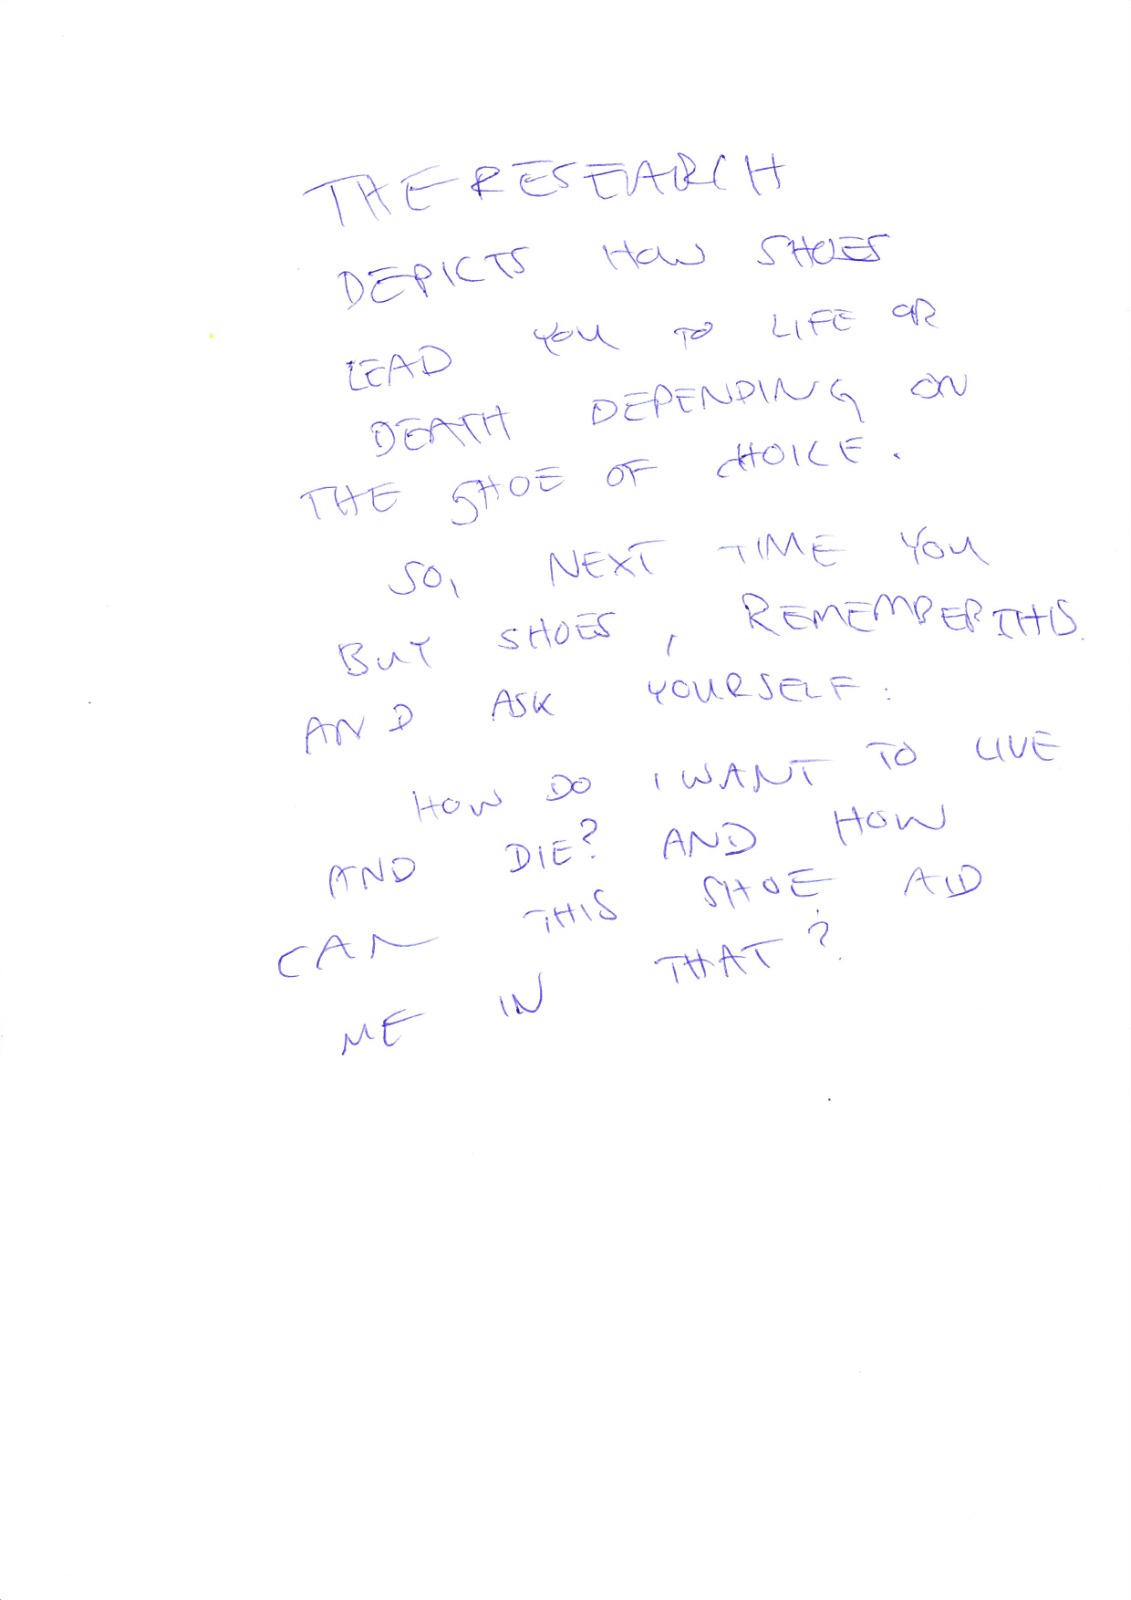 THE RESEARCH
DEPICTS HOW SHOES
LEAD YOU TO LIFE OR
DEATH DEPENDING ON
THE SHOE OF CHOICE.
SO, NEXT TIME YOU
BUY SHOES, REMEMBER THIS
AND ASK YOURSELF:
HOW DO I WANT TO LIVE
AND DIE? AND HOW
CAN THIS SHOE AID
ME IN THAT?